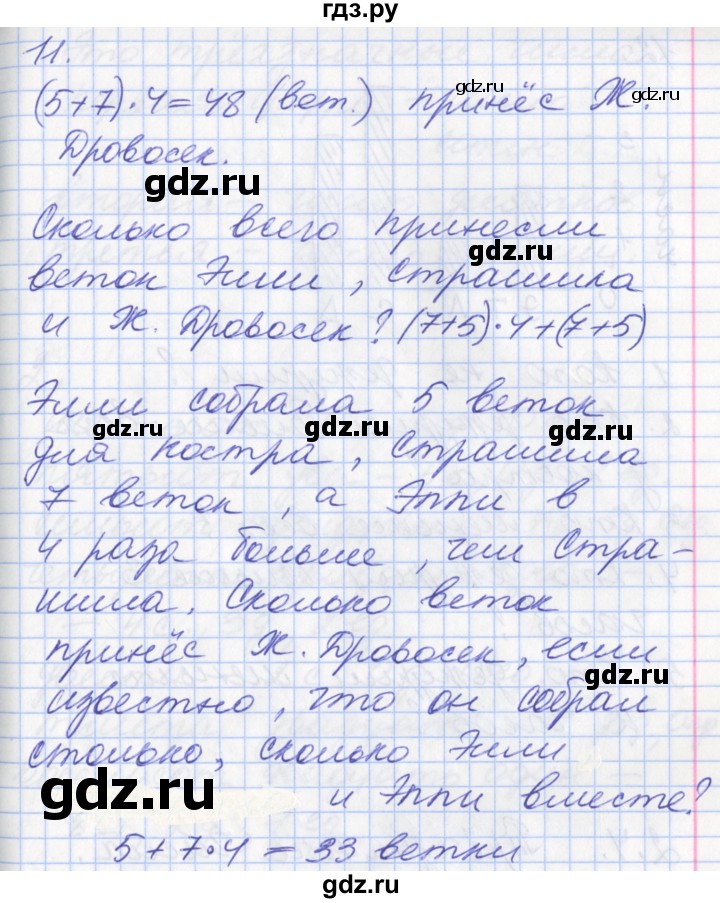 гдз.ру
11.
(5+7)·4=48 (вет.) принёс Ж.
Дровосек.
Сколько всего принесли
веток Элли, Страшила
и Ж. Дровосек? (7+5)·4+(7+5)
Элли собрала 5 веток
для костра, Страшила
7 веток, а Эппи в
4 раза больше, чем Стра-
шила. Сколько веток
принёс Ж. Дровосек, если
известно, что он собрал
столько, сколько Элли
и Эппи вместе?
5+7·4=33 ветки
gdz.ru
gdz.ru
gdz.ru
gdz.ru
gdz.ru
gdz.ru
gdz.ru
gdz.ru
gdz.ru
gdz.ru
gdz.ru
gdz.ru
gdz.ru